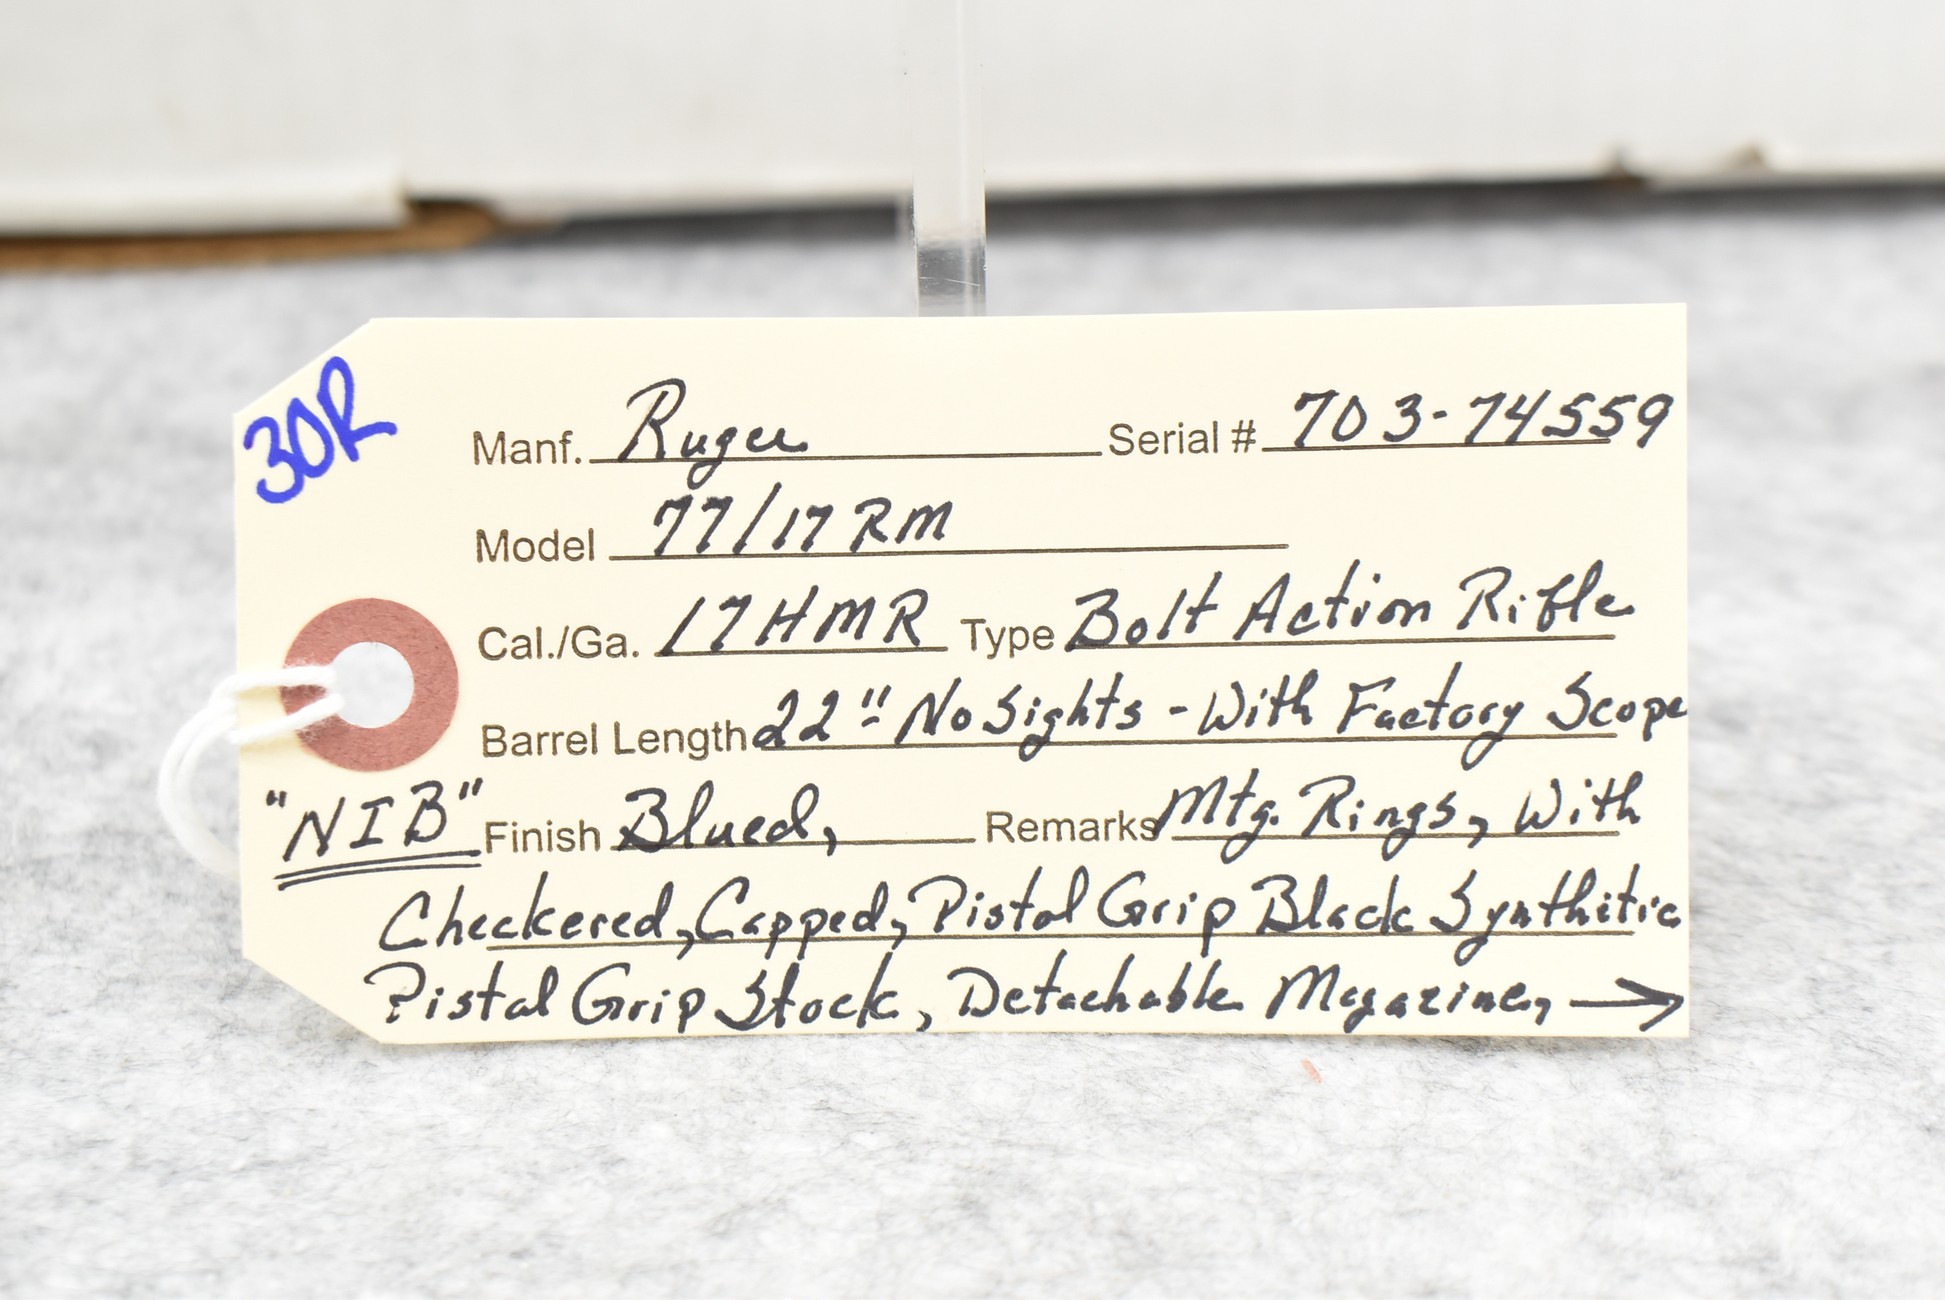 30R
Manf. Ruger Serial # 703-74559
Model 77/17 RM
Cal./Ga. 17HMR Type Bolt Action Rifle
Barrel Length 22" No Sights - With Factory Scope
"NIB" Finish Blued, Remarks Mtg. Rings, With
Checkered, Capped, Pistol Grip Black Synthitic
Pistal Grip Stock, Detachable Magazine, →